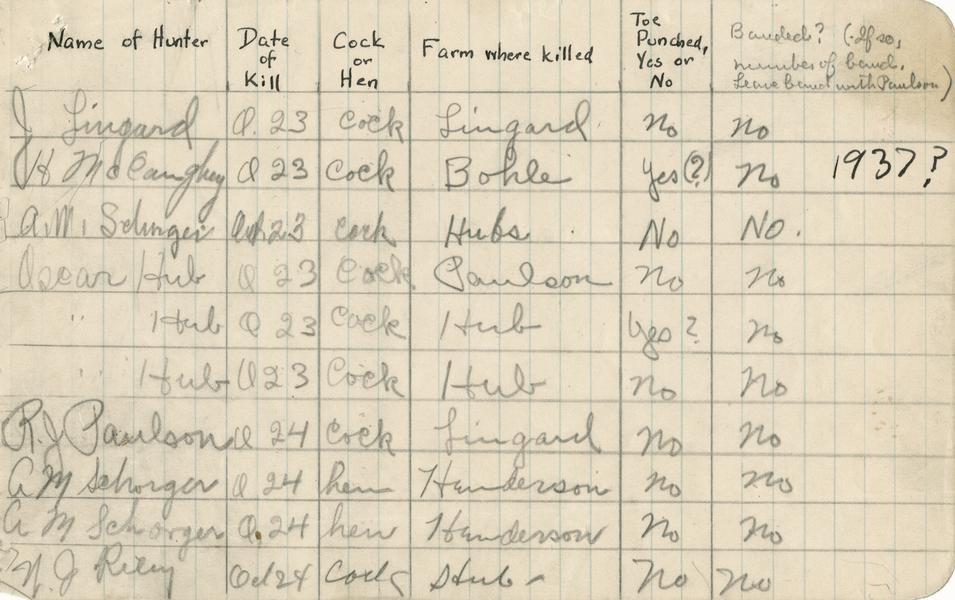 Name of Hunter Date of Kill Cock or Hen Farm where killed Toe Punched, Yes or No Banded? (If so, number of band. Leave band with Paulson)
J Lingard O. 23 Cock Lingard No No
H McCaughey O 23 Cock Bohle Yes(?) No 1937?
A.M. Schnger Oct 23 Cock Hubs No NO.
Oscar Hub O 23 Cock Paulson No No
" Hub O 23 Cock Hub Yes? No
" Hub O 23 Cock Hub No No
R.J Paulson O 24 Cock Lingard No No
A M Schorger O 24 hen Henderson No No
A M Schorger O. 24 hen Henderson No No
N J Riley Oct 24 Cock Hub No No